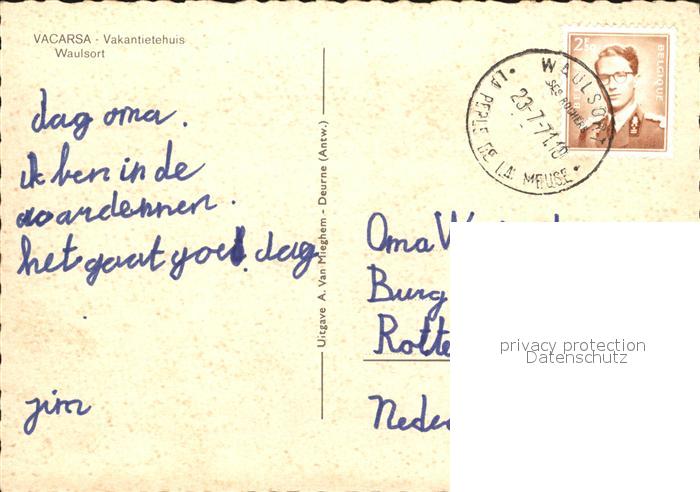 VACARSA - Vakantietehuis
Waulsort
dag oma.
ik ben in de
aardennen.
het gaat goed. dag
jim
Uitgave A. Van Mieghem - Deurne (Antw.)
2F50
BELGIQUE
WAULSORT
SES ROCHERS
23-7-71.18
LA PERLE DE LA MEUSE
Oma W
Burg
Rotte
Neder
privacy protection
Datenschutz